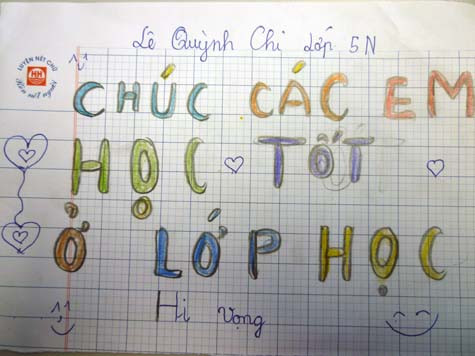 Lê Quỳnh Chi Lớp 5N
LUYỆN NÉT CHỮ
HH
CHÚC CÁC EM
HỌC TỐT
Ở LỚP HỌC
Hi Vọng